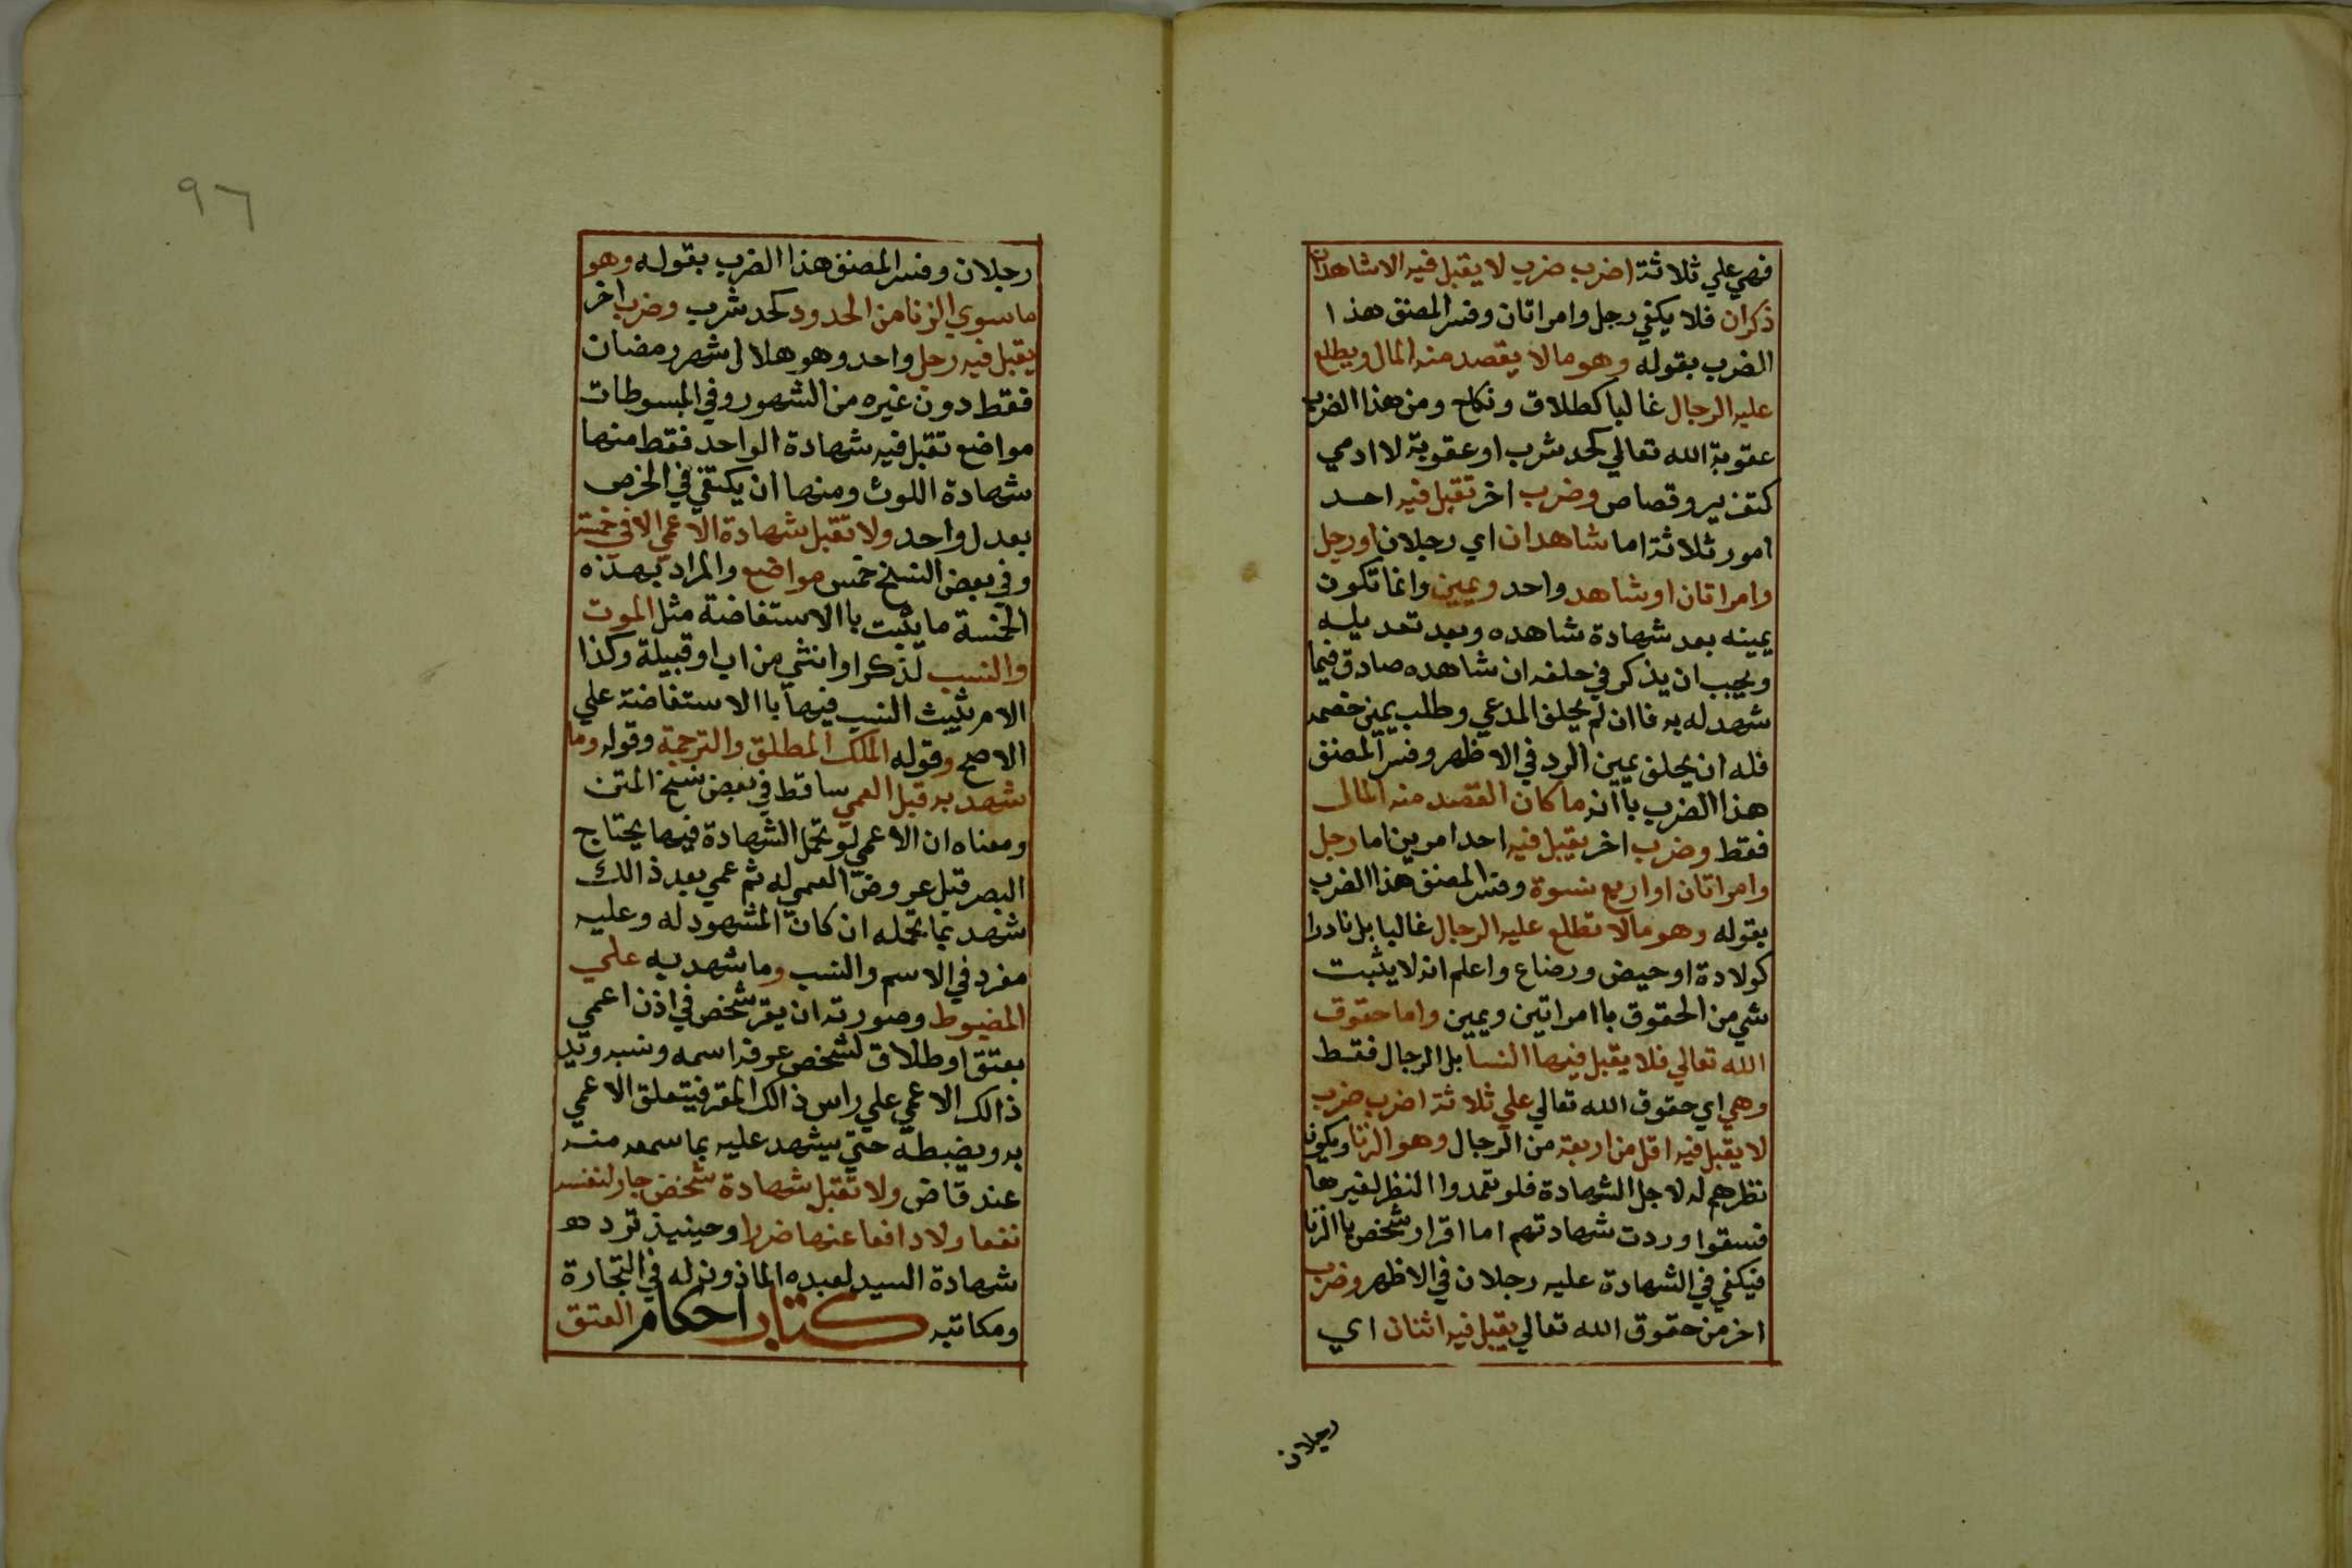 فهي علي ثلاثة اضرب ضرب لا يقبل فيه الا شاهدان
ذكران فلا يكفي رجل وامراتان وفسر المصنف هذا
الضرب بقوله وهو مالا يقصد منه المال ويطلع
عليه الرجال غالبا كطلاق ونكاح ومن هذا الضرب
عقوبة الله تعالي كحد شرب او عقوبة لا ادمي
كتعزير وقصاص وضرب اخر تقبل فيه احد
امور ثلاثة اما شاهدان اي رجلان او رجل
وامراتان او شاهد واحد ويمين وانما تكون
يمينه بعد شهادة شاهده وبعد تعديله
ويجب ان يذكر في حلفه ان شاهده صادق فيما
شهد له به فاان لم يحلف المدعي وطلب يمين خصمه
فله ان يحلف يمين الرد في الاظهر وفسر المصنف
هذا الضرب باانه ما كان القصد منه المال
فقط وضرب اخر يقبل فيه احد امرين اما رجل
وامراتان او اربع نسوة وفسر المصنف هذا الضرب
بقوله وهو مالا تطلع عليه الرجال غالبا بل نادرا
كولادة او حيض ورضاع واعلم انه لا يثبت
شي من الحقوق باامراتين ويمين واما حقوق
الله تعالي فلا يقبل فيها النسا بل الرجال فقط
وهي اي حقوق الله تعالي علي ثلاثة اضرب ضرب
لا يقبل فيه اقل من اربعة من الرجال وهو الزنا ويكون
نظرهم له لاجل الشهادة فلو تعمدوا النظر لغيرها
فسقوا وردت شهادتهم اما اقرار شخص باالزنا
فيكفي في الشهادة عليه رجلان في الاظهر وضرب
اخر من حقوق الله تعالي يقبل فيه اثنان اي
رجلان
٩٦
رجلان وفسر المصنف هذا الضرب بقوله وهو
ما سوي الزنا من الحدود كحد شرب وضرب اخر
يقبل فيه رجل واحد وهو هلال شهر رمضان
فقط دون غيره من الشهور وفي المبسوطات
مواضع تقبل فيه شهادة الواحد فقط منها
شهادة اللوث ومنها ان يكتفي في الخرص
بعدل واحد ولا تقبل شهادة الاعمي الا في خمسة
وفي بعض النسخ خمس مواضع والمراد بهذه
الخمسة ما يثبت باالاستفاضة مثل الموت
والنسب لذكر او انثي من اب او قبيلة وكذا
الام يثبت النسب فيها باالاستفاضة علي
الاصح وقوله الملك المطلق والترجمة وقوله وما
شهد به قبل العمي ساقط في بعض نسخ المتن
ومعناه ان الاعمي لو تحمل الشهادة فيما يحتاج
البصر قبل عروض العمي له ثم عمي بعد ذالك
شهد بما تحمله ان كان المشهود له وعليه
مفرد في الاسم والنسب وما شهد به علي
المضبوط وصورته ان يقر شخص في اذن اعمي
بعتق او طلاق لشخص عرف اسمه ونسبه ويد
ذالك الاعمي علي راس ذالك المقر فيتعلق الاعمي
به ويضبطه حتي يشهد عليه بما سمعه منه
عند قاض ولا تقبل شهادة شخص جار لنفسه
نفعا ولا دافعا عنها ضررا وحينيذ ترد
شهادة السيد لعبده الماذون له في التجارة
ومكاتبه كتاب احكام العتق